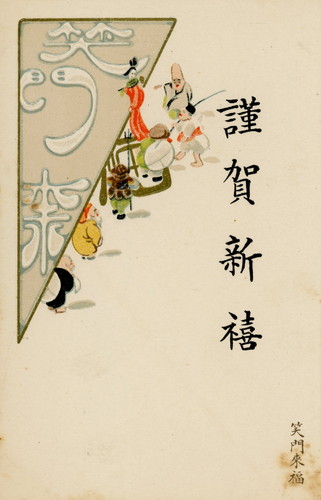 謹賀新禧
笑門来
笑門來福